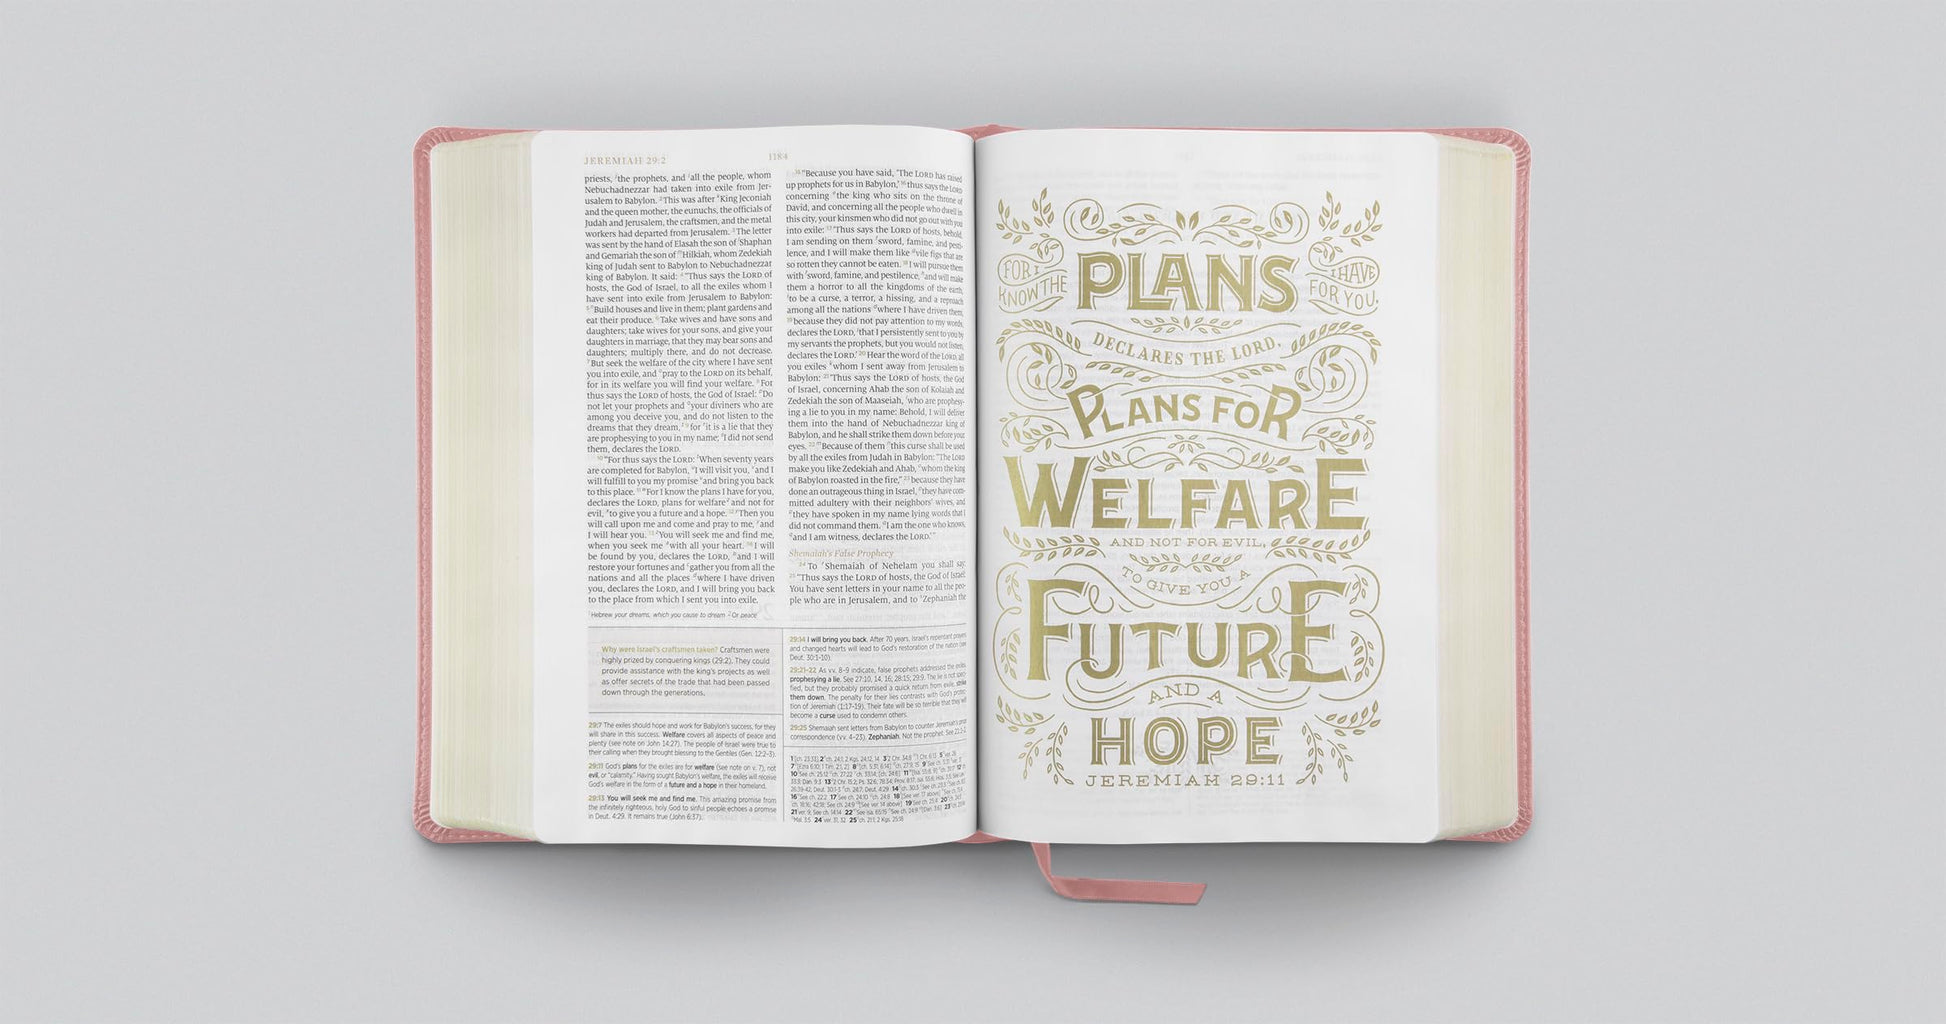 JEREMIAH 29:2
1184
priests, the prophets, and all the people, whom
Nebuchadnezzar had taken into exile from Jer-
usalem to Babylon. 2 This was after King Jeconiah
and the queen mother, the eunuchs, the officials of
Judah and Jerusalem, the craftsmen, and the metal
workers had departed from Jerusalem. 3 The letter
was sent by the hand of Elasah the son of Shaphan
and Gemariah the son of Hilkiah, whom Zedekiah
king of Judah sent to Babylon to Nebuchadnezzar
king of Babylon. It said: 4 "Thus says the LORD of
hosts, the God of Israel, to all the exiles whom I
have sent into exile from Jerusalem to Babylon:
5 Build houses and live in them; plant gardens and
eat their produce. 6 Take wives and have sons and
daughters; take wives for your sons, and give your
daughters in marriage, that they may bear sons and
daughters; multiply there, and do not decrease.
7 But seek the welfare of the city where I have sent
you into exile, and pray to the LORD on its behalf,
for in its welfare you will find your welfare. 8 For
thus says the LORD of hosts, the God of Israel: Do
not let your prophets and your diviners who are
among you deceive you, and do not listen to the
dreams that they dream, 9 for it is a lie that they
are prophesying to you in my name; I did not send
them, declares the LORD.
10 "For thus says the LORD: When seventy years
are completed for Babylon, I will visit you, and I
will fulfill to you my promise and bring you back
to this place. 11 For I know the plans I have for you,
declares the LORD, plans for welfare and not for
evil, to give you a future and a hope. 12 Then you
will call upon me and come and pray to me, and
I will hear you. 13 You will seek me and find me,
when you seek me with all your heart. 14 I will
be found by you, declares the LORD, and I will
restore your fortunes and gather you from all the
nations and all the places where I have driven
you, declares the LORD, and I will bring you back
to the place from which I sent you into exile.
1 Hebrew your dreams, which you cause to dream 2 Or peace
Why were Israel's craftsmen taken? Craftsmen were
highly prized by conquering kings (29:2). They could
provide assistance with the king's projects as well
as offer secrets of the trade that had been passed
down through the generations.
29:7 The exiles should hope and work for Babylon's success, for they
will share in this success. Welfare covers all aspects of peace and
plenty (see note on John 14:27). The people of Israel were true to
their calling when they brought blessing to the Gentiles (Gen. 12:2–3).
29:11 God's plans for the exiles are for welfare (see note on v. 7), not
evil, or "calamity." Having sought Babylon's welfare, the exiles will receive
God's welfare in the form of a future and a hope in their homeland.
29:13 You will seek me and find me. This amazing promise from
the infinitely righteous, holy God to sinful people echoes a promise
in Deut. 4:29. It remains true (John 6:37).
15 "Because you have said, 'The LORD has raised
up prophets for us in Babylon,' 16 thus says the LORD
concerning the king who sits on the throne of
David, and concerning all the people who dwell in
this city, your kinsmen who did not go out with you
into exile: 17 'Thus says the LORD of hosts, behold,
I am sending on them sword, famine, and pesti-
lence, and I will make them like vile figs that are
so rotten they cannot be eaten. 18 I will pursue them
with sword, famine, and pestilence, and will make
them a horror to all the kingdoms of the earth,
to be a curse, a terror, a hissing, and a reproach
among all the nations where I have driven them,
19 because they did not pay attention to my words,
declares the LORD, that I persistently sent to you by
my servants the prophets, but you would not listen,
declares the LORD.' 20 Hear the word of the LORD, all
you exiles whom I sent away from Jerusalem to
Babylon: 21 'Thus says the LORD of hosts, the God
of Israel, concerning Ahab the son of Kolaiah and
Zedekiah the son of Maaseiah, who are prophesy-
ing a lie to you in my name: Behold, I will deliver
them into the hand of Nebuchadnezzar king of
Babylon, and he shall strike them down before your
eyes. 22 Because of them this curse shall be used
by all the exiles from Judah in Babylon: "The LORD
make you like Zedekiah and Ahab, whom the king
of Babylon roasted in the fire," 23 because they have
done an outrageous thing in Israel, they have com-
mitted adultery with their neighbors' wives, and
they have spoken in my name lying words that I
did not command them. I am the one who knows,
and I am witness, declares the LORD.'"
Shemaiah's False Prophecy
24 To Shemaiah of Nehelam you shall say:
25 "Thus says the LORD of hosts, the God of Israel:
You have sent letters in your name to all the peo-
ple who are in Jerusalem, and to Zephaniah the
29:14 I will bring you back. After 70 years, Israel's repentant prayers
and changed hearts will lead to God's restoration of the nation (see
Deut. 30:1–10).
29:21–22 As vv. 8–9 indicate, false prophets addressed the exiles,
prophesying a lie. See 27:10, 14, 16; 28:15; 29:9. The lie is not speci-
fied, but they probably promised a quick return from exile. strike
them down. The penalty for their lies contrasts with God's protec-
tion of Jeremiah (1:17–19). Their fate will be so terrible that they will
become a curse used to condemn others.
29:25 Shemaiah sent letters from Babylon to counter Jeremiah's prior
correspondence (vv. 4–23). Zephaniah. Not the prophet.
FOR I
KNOW THE
PLANS
I HAVE
FOR YOU,
DECLARES THE LORD,
PLANS FOR
WELFARE
AND NOT FOR EVIL,
TO GIVE YOU A
FUTURE
AND A
HOPE
JEREMIAH 29:11